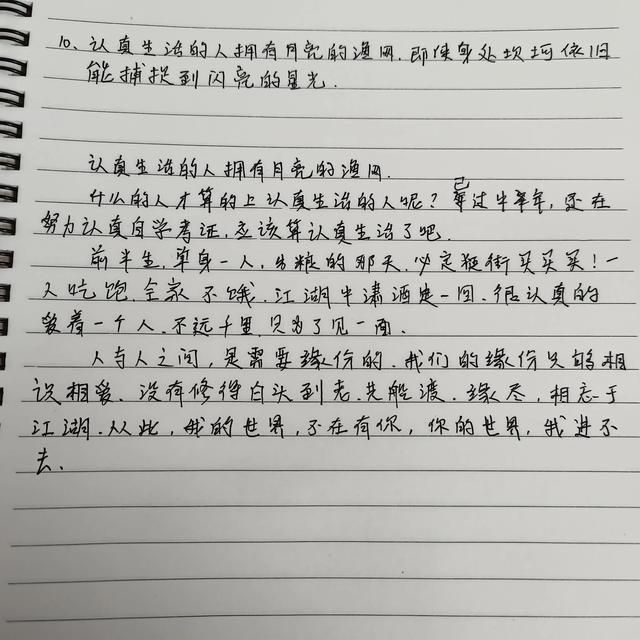 10、认真生活的人拥有月亮的渔网.即使身处坎坷依旧
能捕捉到闪亮的星光.
认真生活的人拥有月亮的渔网.
什么的人才算的上认真生活的人呢？已过半辈年,还在
努力认真自学考证,应该算认真生活了吧.
前半生,单身一人,出粮的那天,必定逛街买买买！一
人吃饱,全家不饿.江湖中潇洒走一回.很认真的
爱着一个人.不远千里,只为了见一面.
人与人之间,是需要缘份的.我们的缘份只够相
识相爱.没有修得白头到老.共船渡.缘尽,相忘于
江湖.从此,我的世界,不在有你,你的世界,我进不
去.